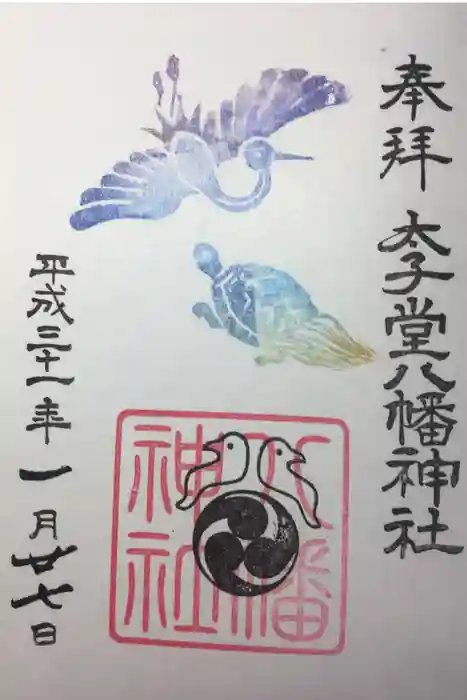 奉拝 太子堂八幡神社
八幡
神社
平成三十一年一月廿七日